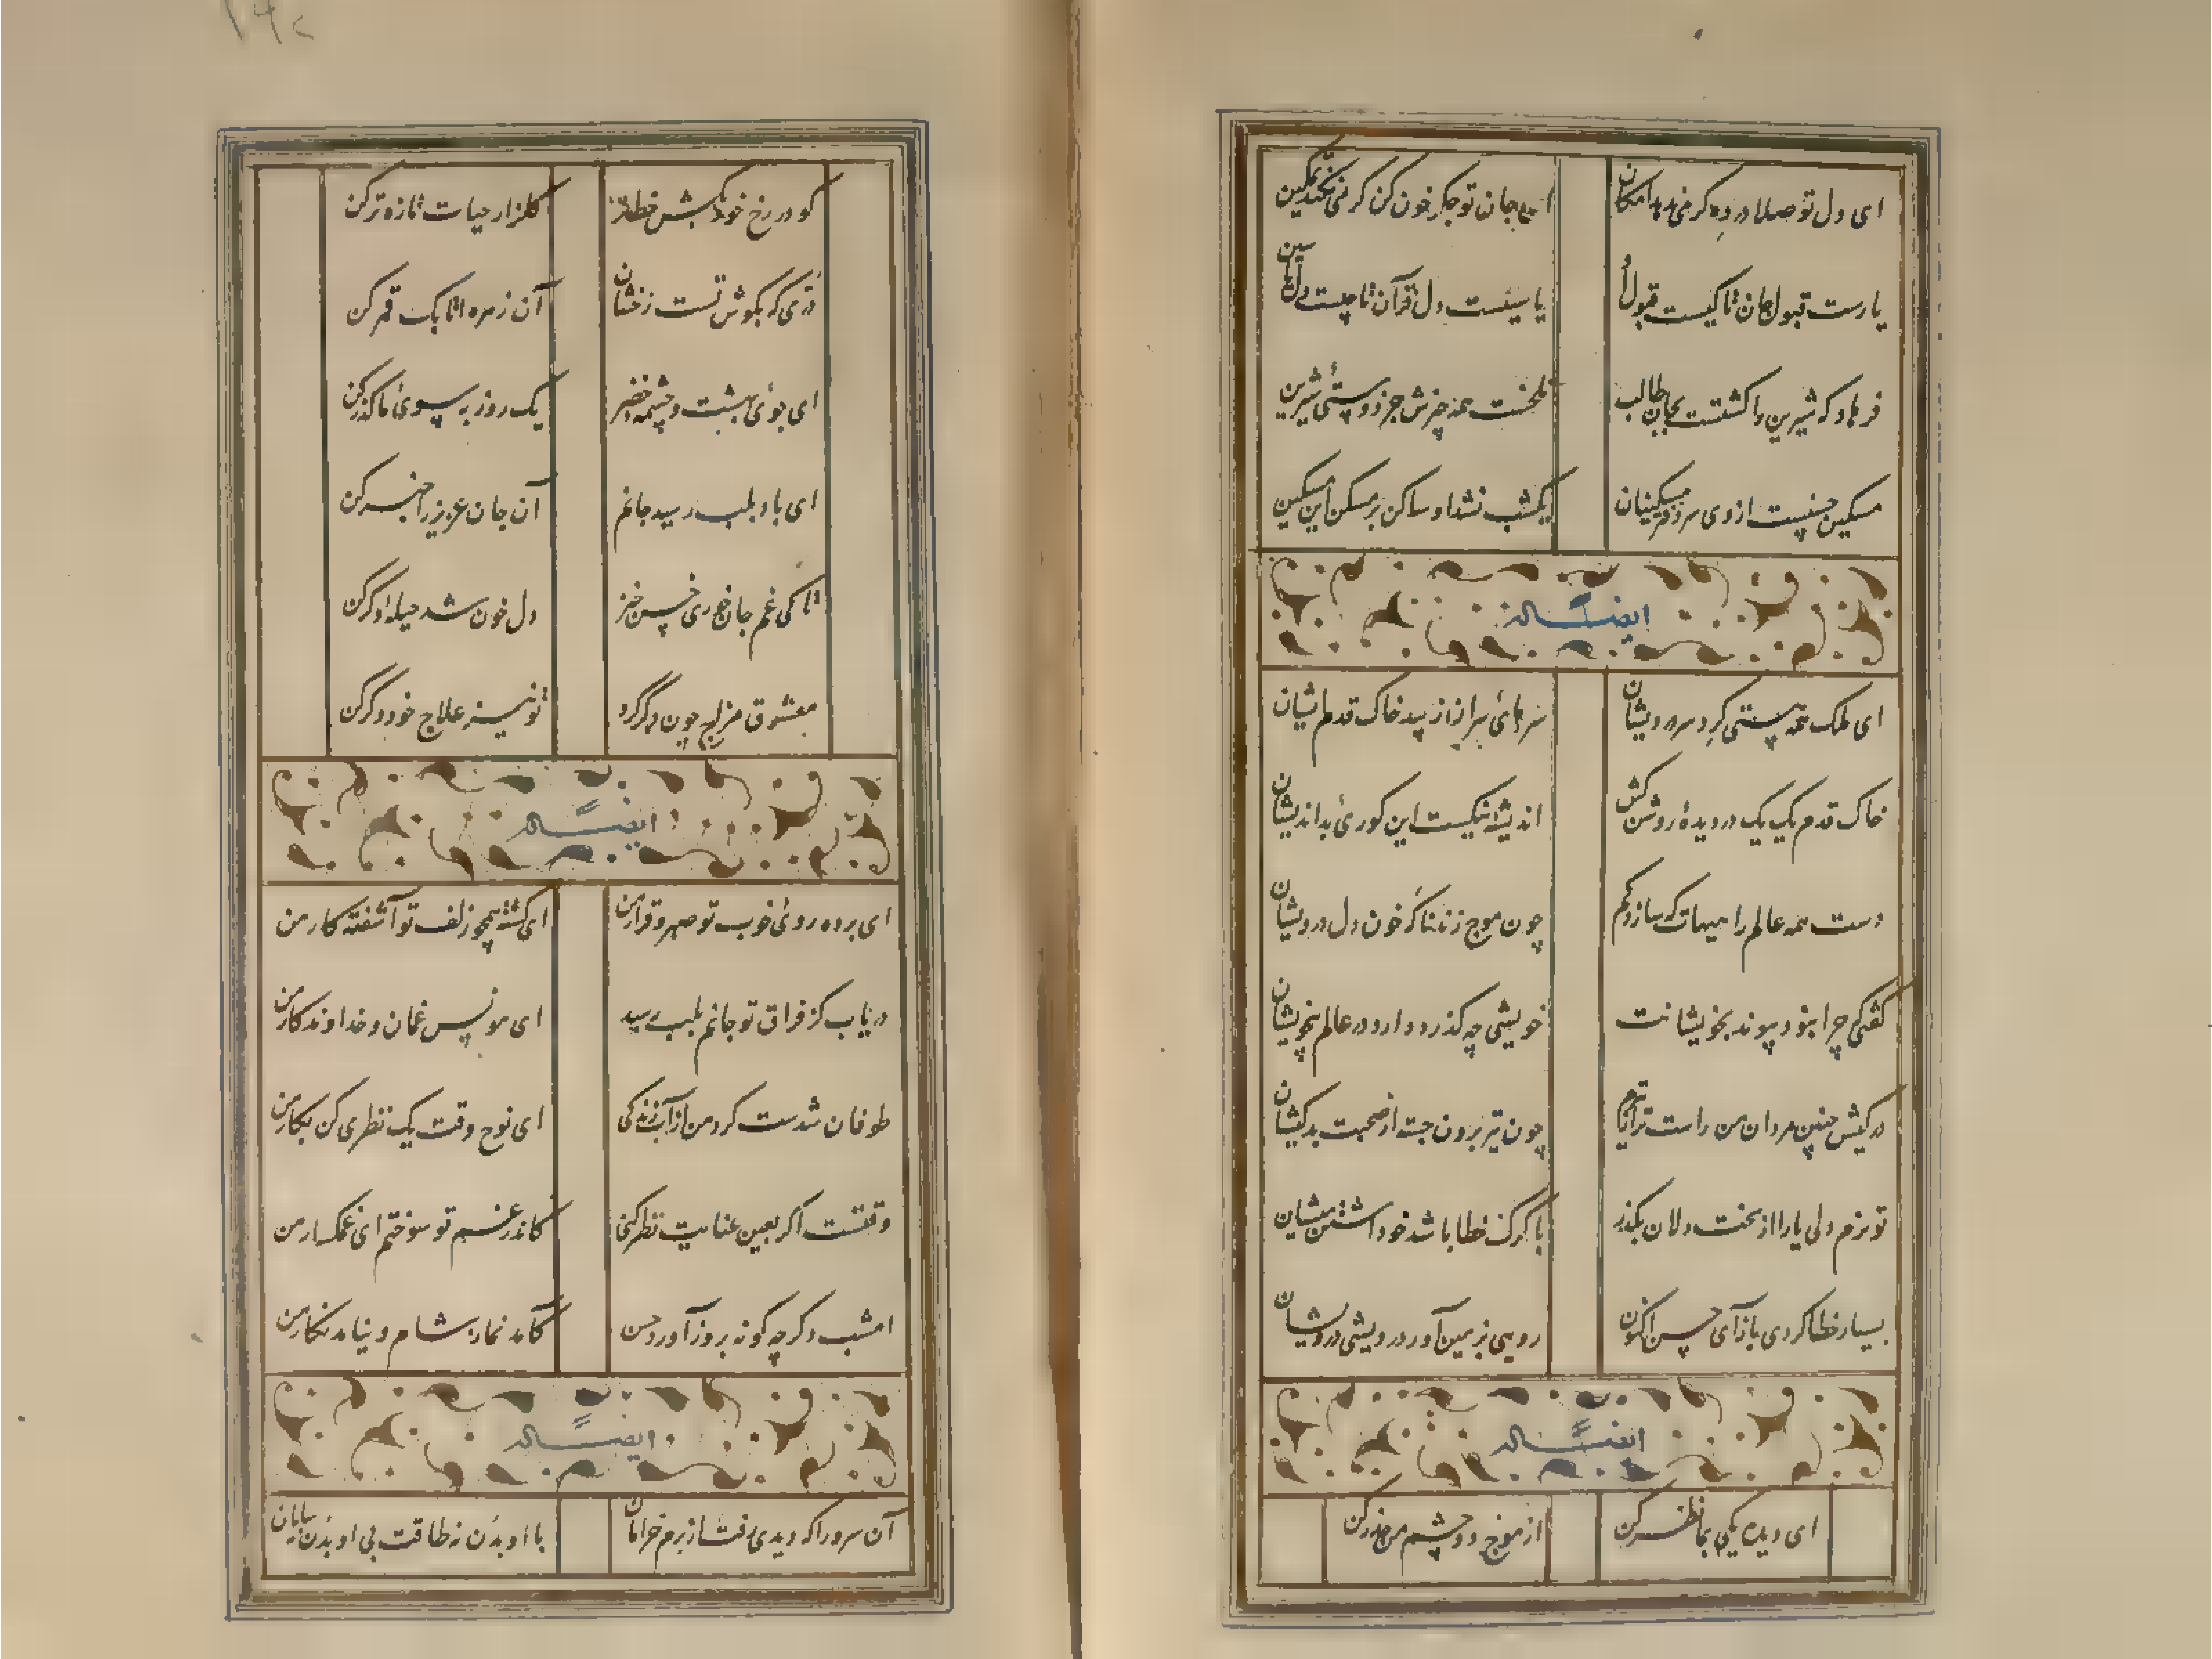 ای دل تو صلا در ده گر می‌ندهد امکان
ای جان تو جگر خون کن گر می‌نکند تمکین
یارست قبول جان تا کیست قبول او
یاسینست دل قرآن تا چیست دل یاسین
فرهاد که شیرین را گشتست بجان طالب
تلخست همه چیزش جز دوستیٔ شیرین
مسکین حسنیست از وی سردفتر مسکینان
یکشب نشد او ساکن بر مسکن این مسکین
ایضاً له
ای ملک همه هستی گرد سر درویشان
سرهای سرافرازان پیش خاک قدم ایشان
خاک قدم یک یک در دیدهٔ روشن کش
اندیشه نیکیست این کوریٔ بداندیشان
دست همه عالم را هیهات که سازد گم
چون موج زند ناگه خون دل درویشان
گفتی که چرا نبود پیوند بخویشانت
خویشی چه گذر دارد در عالم بیخویشان
در کیش چنین مردان من راست ترا
چون تیر برون جست از صحبت بدکیشان
تو نرم دلی یارا از سخت دلان بگذر
با گرگ خطا باشد خود داشتن میشان
بسیار خطا کردی بازآی حسن اکنون
رویی بزمین آور در ویشی درویشان
ایضاً له
ای دیده یکی بما نظر کن
از موج دو چشم من حذر کن
کو در رخ خود بکش خط تر
گلزار حیات تازه تر کن
دری که بگوش تست رخشان
آن زهره اتابک قمر کن
ای جوی بهشت و چشمه خضر
یک روز به سوی ما گذر کن
ای باد بلب رسید جانم
آن جان عزیز را خبر کن
تا کی غم جان خوری حسن خیز
دل خون شد حیله دگر کن
معشوق مزاج چون دگر کرد
تو نیز علاج خود دگر کن
ایضاً له
ای برده روی خوب تو صبر و قرار من
ای گشته همچو زلف تو آشفته کار من
دریاب کز فراق تو جانم بلب رسید
ای مونس غمان و خداوندگار من
طوفان شدست گرد من از آب زندگی
ای نوح وقت یک نظری کن بکار من
وقتست اگر بعین عنایت نظر کنی
کاندر غم تو سوختم ای غمگسار من
امشب دگر چه گونه بروز آورد حسن
کآمد نماز شام و نیامد نگار من
ایضاً له
آن سرو را که دیدی رفت از برم خرامان
با او بدن نه طاقت بی او بدن نه سامان